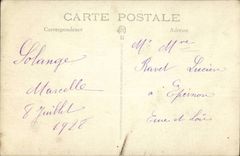 CARTE POSTALE
Correspondance
Adresse
Solange
Marcelle
8 Juillet
1928
Mr Mme
Ravet Lucien
à Epernon
Eure et Loir